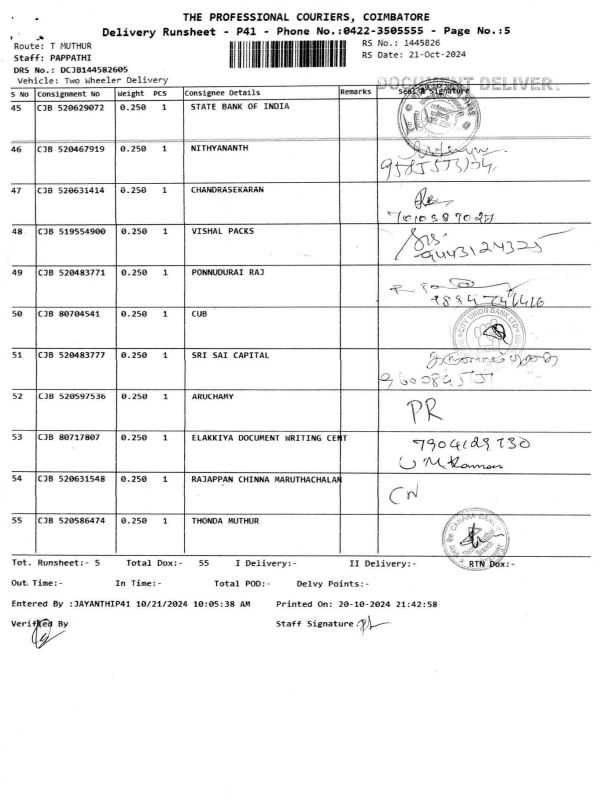 THE PROFESSIONAL COURIERS, COIMBATORE
Delivery Runsheet - P41 - Phone No.:0422-3505555 - Page No.:5
Route: T MUTHUR
RS No.: 1445826
Staff: PAPPATHI
RS Date: 21-Oct-2024
DRS No.: DCJB144582605
Vehicle: Two Wheeler Delivery
DOCUMENT DELIVER
S No Consignment No Weight PCS Consignee Details Remarks Seal & Signature
45 CJB 520629072 0.250 1 STATE BANK OF INDIA
46 CJB 520467919 0.250 1 NITHYANANTH
47 CJB 520631414 0.250 1 CHANDRASEKARAN
7010587027
48 CJB 519554900 0.250 1 VISHAL PACKS
9443124325
49 CJB 520483771 0.250 1 PONNUDURAI RAJ
50 CJB 80704541 0.250 1 CUB
CITY UNION BANK LTD
51 CJB 520483777 0.250 1 SRI SAI CAPITAL
52 CJB 520597536 0.250 1 ARUCHAMY
PR
53 CJB 80717807 0.250 1 ELAKKIYA DOCUMENT WRITING CENT
54 CJB 520631548 0.250 1 RAJAPPAN CHINNA MARUTHACHALAM
55 CJB 520586474 0.250 1 THONDA MUTHUR
CANARA BANK
Tot. Runsheet:- 5 Total Dox:- 55 I Delivery:- II Delivery:- RTN Dox:-
Out Time:- In Time:- Total POD:- Delvy Points:-
Entered By :JAYANTHIP41 10/21/2024 10:05:38 AM Printed On: 20-10-2024 21:42:58
Verified By Staff Signature